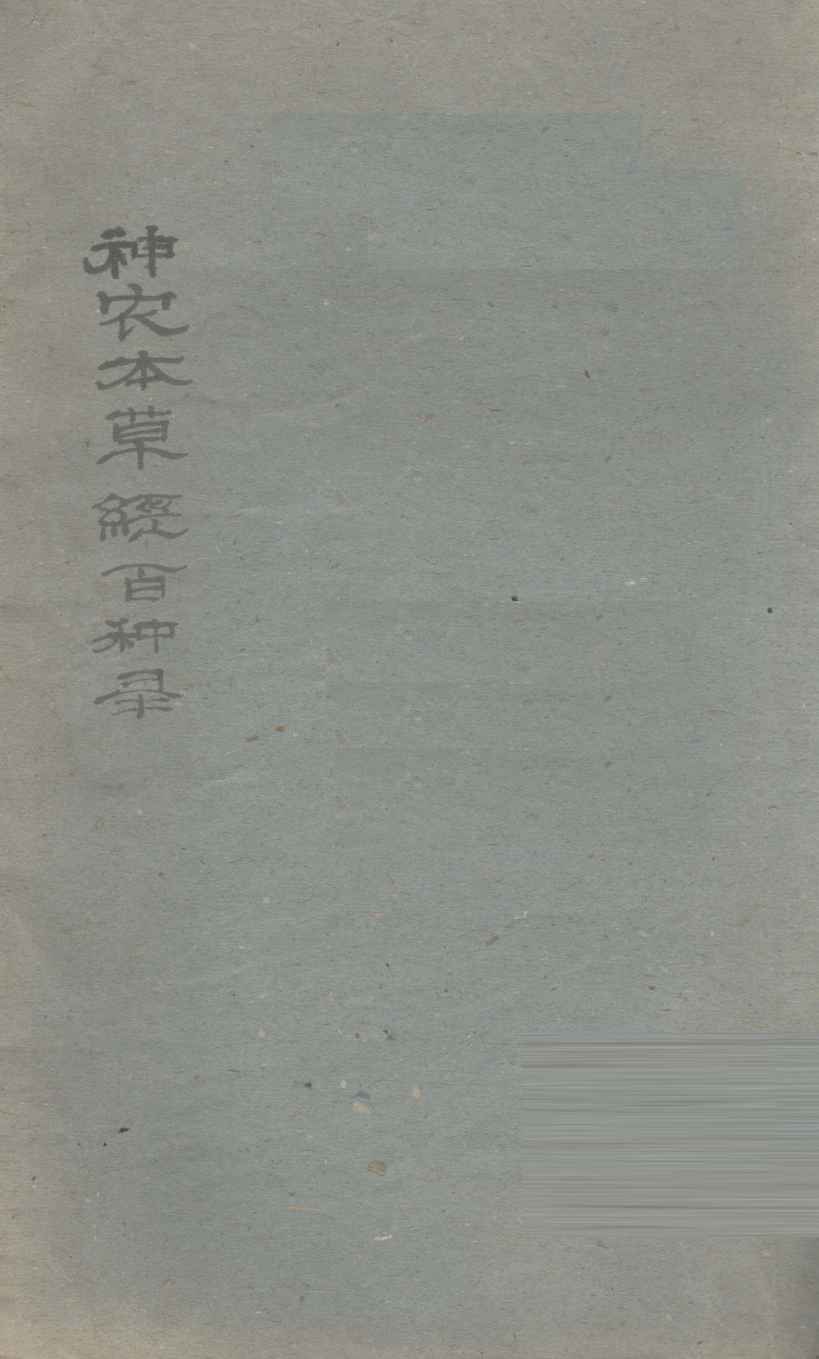 神农本草經百种录